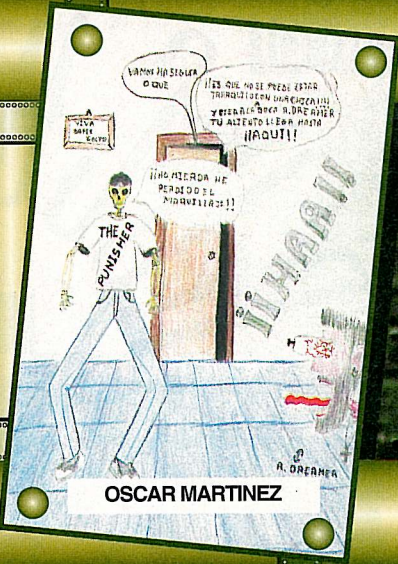 VAMOS HA SEGUIR
O QUE
¡¡ES QUE NO SE PUEDE ESTAR
TRANQUILO CON UNA CHICA!!!
Y CIERRA LA BOCA A. DREAMER
TU ALIENTO LLEGA HASTA
¡¡AQUI!!
VIVA
¡¡HO MIERDA HE
PERDIDO EL
MAQUILLAJE!!
THE
PUNISHER
¡¡¡HAAA!!
A. DREAMER
OSCAR MARTINEZ